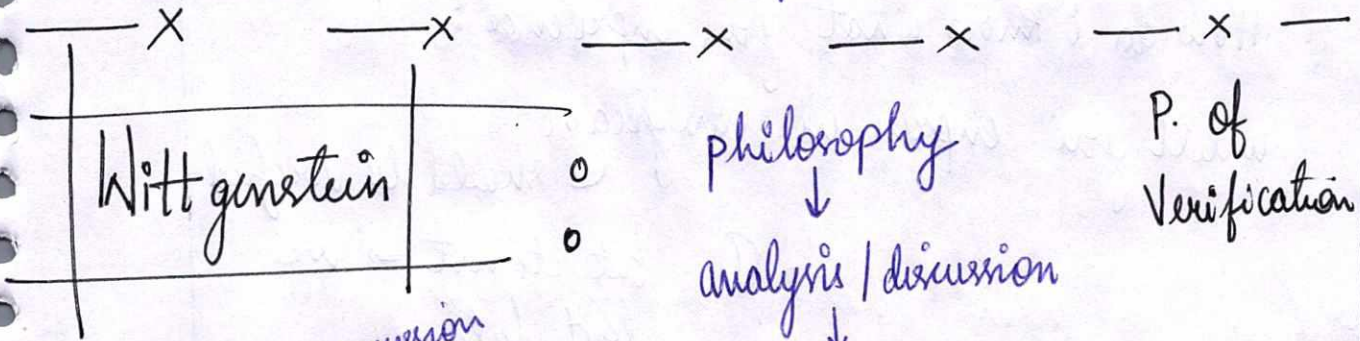 Wittgenstein :
philosophy
↓
analysis / discussion
↓
P. of
Verification